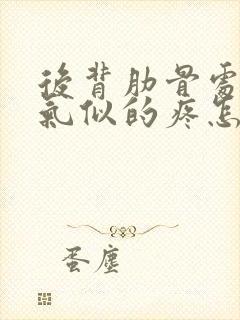 後背肋骨處
氣似的疼怎
蛋塵